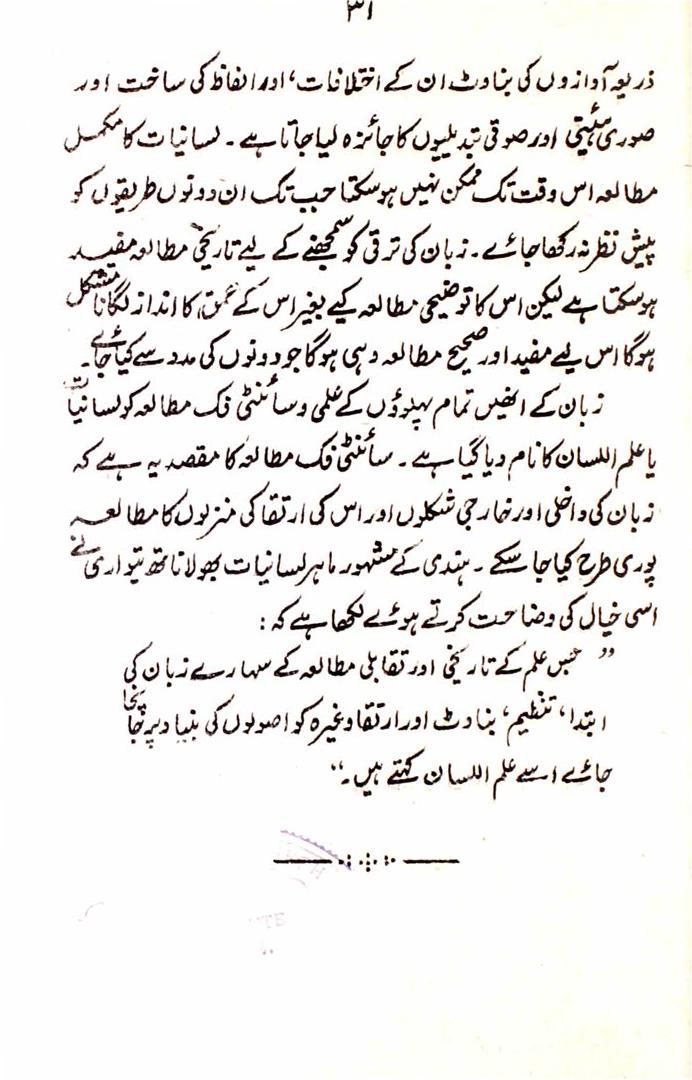 ۳۱
ذریعہ آوازوں کی بناوٹ ان کے اختلافات، اور الفاظ کی ساخت اور
صوری ہئیتی اور صوتی تبدیلیوں کا جائزہ لیا جاتا ہے۔ لسانیات کا مکمل
مطالعہ اس وقت تک ممکن نہیں ہوسکتا جب تک ان دونوں طریقوں کو
پیش نظر نہ رکھا جائے۔ زبان کی ترقی کو سمجھنے کے لیے تاریخی مطالعہ مفید
ہوسکتا ہے لیکن اس کا توضیحی مطالعہ کیے بغیر اس کے عمق، کا انداز لگانا مشکل
ہوگا اس لیے مفید اور صحیح مطالعہ وہی ہوگا جو دونوں کی مدد سے کیا جائے۔
زبان کے انھیں تمام پہلوؤں کے علمی و سائنٹی فک مطالعہ کو لسانیات
یا علم اللسان کا نام دیا گیا ہے۔ سائنٹی فک مطالعہ کا مقصد یہ ہے کہ
زبان کی داخلی اور خارجی شکلوں اور اس کی ارتقا کی منزلوں کا مطالعہ
پوری طرح کیا جا سکے۔ ہندی کے مشہور ماہر لسانیات بھولا ناتھ تیواری نے
اسی خیال کی وضاحت کرتے ہوئے لکھا ہے کہ:
”جس علم کے تاریخی اور تقابلی مطالعہ کے سہارے زبان کی
ابتدا، تنظیم، بناوٹ اور ارتقا وغیرہ کو اصولوں کی بنیاد پر جانچا
جائے اسے علم اللسان کہتے ہیں۔“